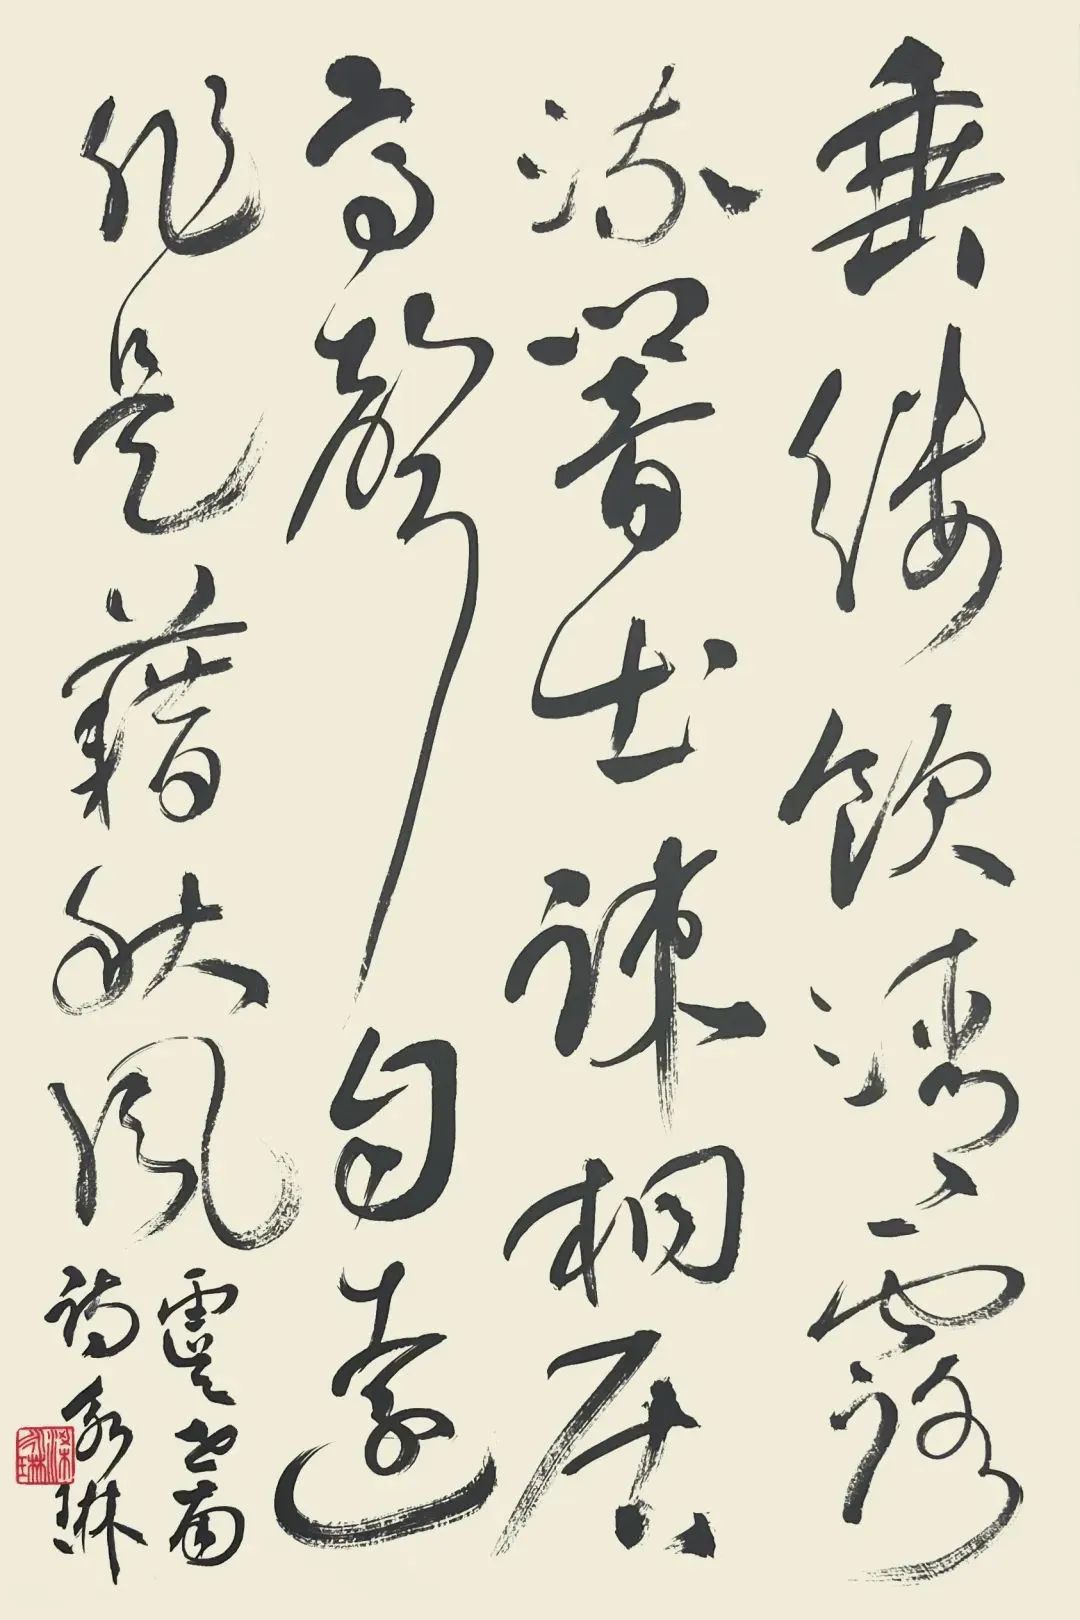 垂緌飲清露
流響出疎桐居
高聲自遠
非是藉秋風
虞世南
詩永琳